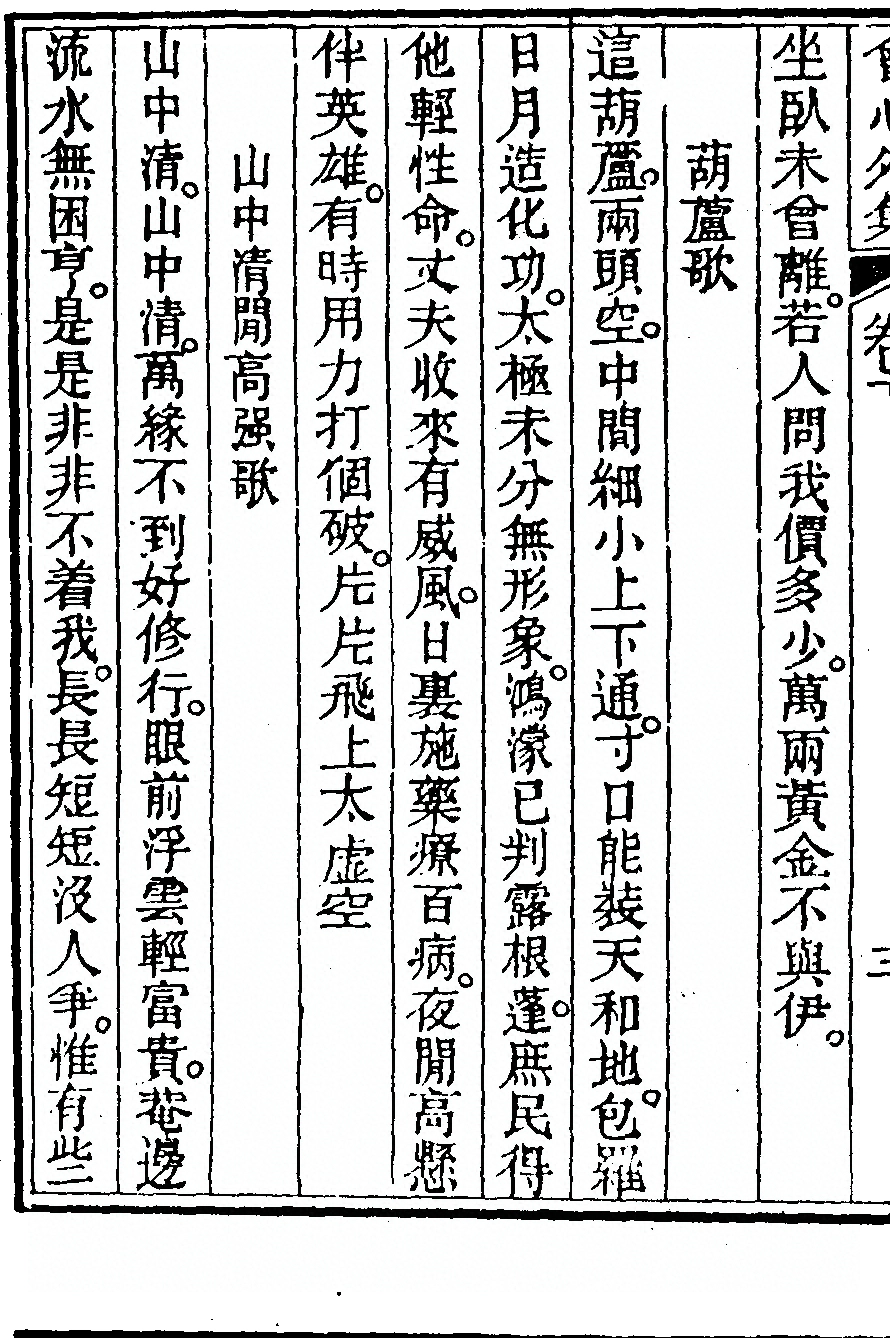 會心外集 卷下 三
坐臥未曾離。若人問我價多少。萬兩黃金不與伊。
葫蘆歌
這葫蘆。兩頭空。中間細小上下通。寸口能裝天和地。包羅
日月造化功。太極未分無形象。鴻濛已判露根蓬。庶民得
他輕性命。丈夫收來有威風。日裏施藥療百病。夜閒高懸
伴英雄。有時用力打個破。片片飛上太虛空
山中清閒高强歌
山中清。山中清。萬緣不到好修行。眼前浮雲輕富貴。菴邊
流水無困亨。是是非非不着我。長長短短沒人爭。惟有些